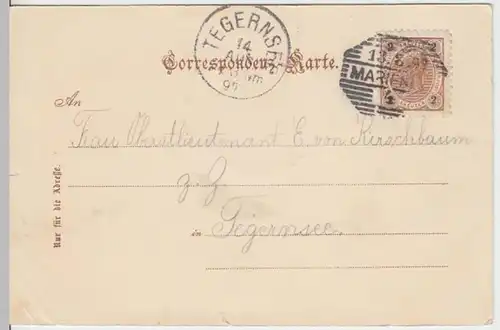 TEGERNSEE
14
AUG
Correspondenz-Karte.
MARIEN
2 2
An
Frau Oberstlieutenant E. von Kirschbaum
z. Z.
in Tegernsee.
Nur für die Adresse.